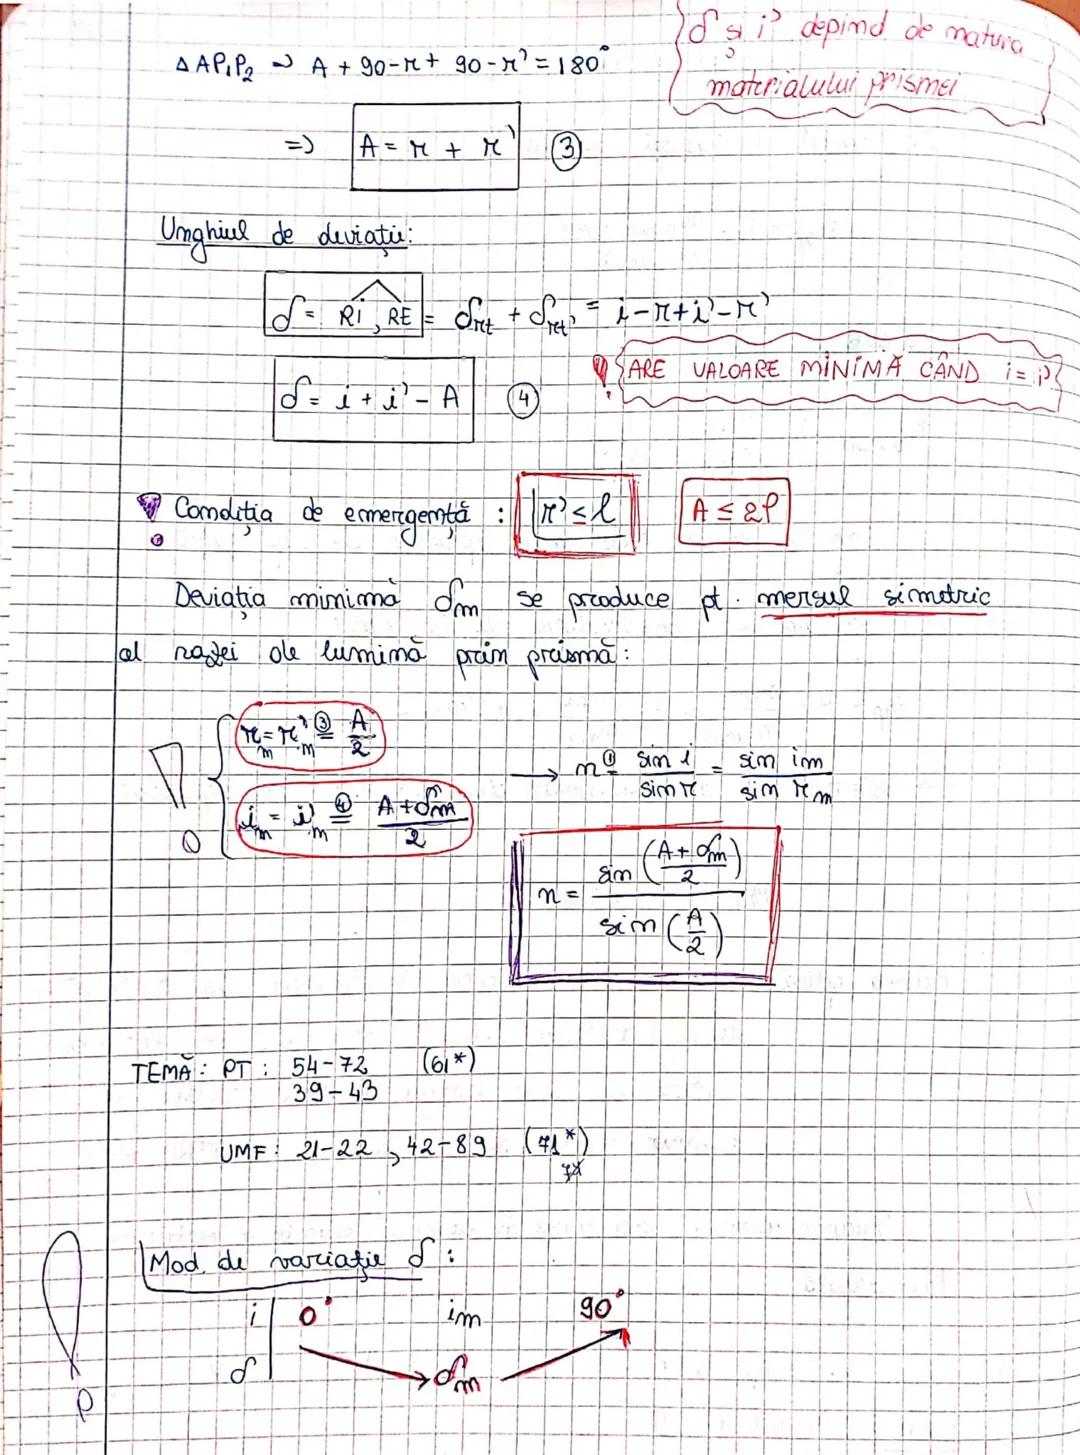 δ și i' depind de natura
materialului prismei
Δ AP₁P₂ ⇝ A + 90-r + 90-r' = 180°
=> A = r + r' ③
Unghiul de deviație:
δ = RI, RE = δret + δret' = i-r+i'-r'
ARE VALOARE MINIMĂ CÂND i = i'
δ = i + i' - A ④
Condiția de emergență : r' ≤ l A ≤ 2l
Deviația minimă δm se produce pt. mersul simetric
al razei de lumină prin prismă:
rm = r'm ③= A/2
im = i'm ④= (A+δm)/2
→ n ①= sin i / sin r = sin im / sin rm
n = sin((A+δm)/2) / sin(A/2)
TEMĂ: PT: 54-72 (61*)
39-43
UMF: 21-22, 42-89 (71*)
Mod. de variație δ:
i 0° im 90°
δ δm